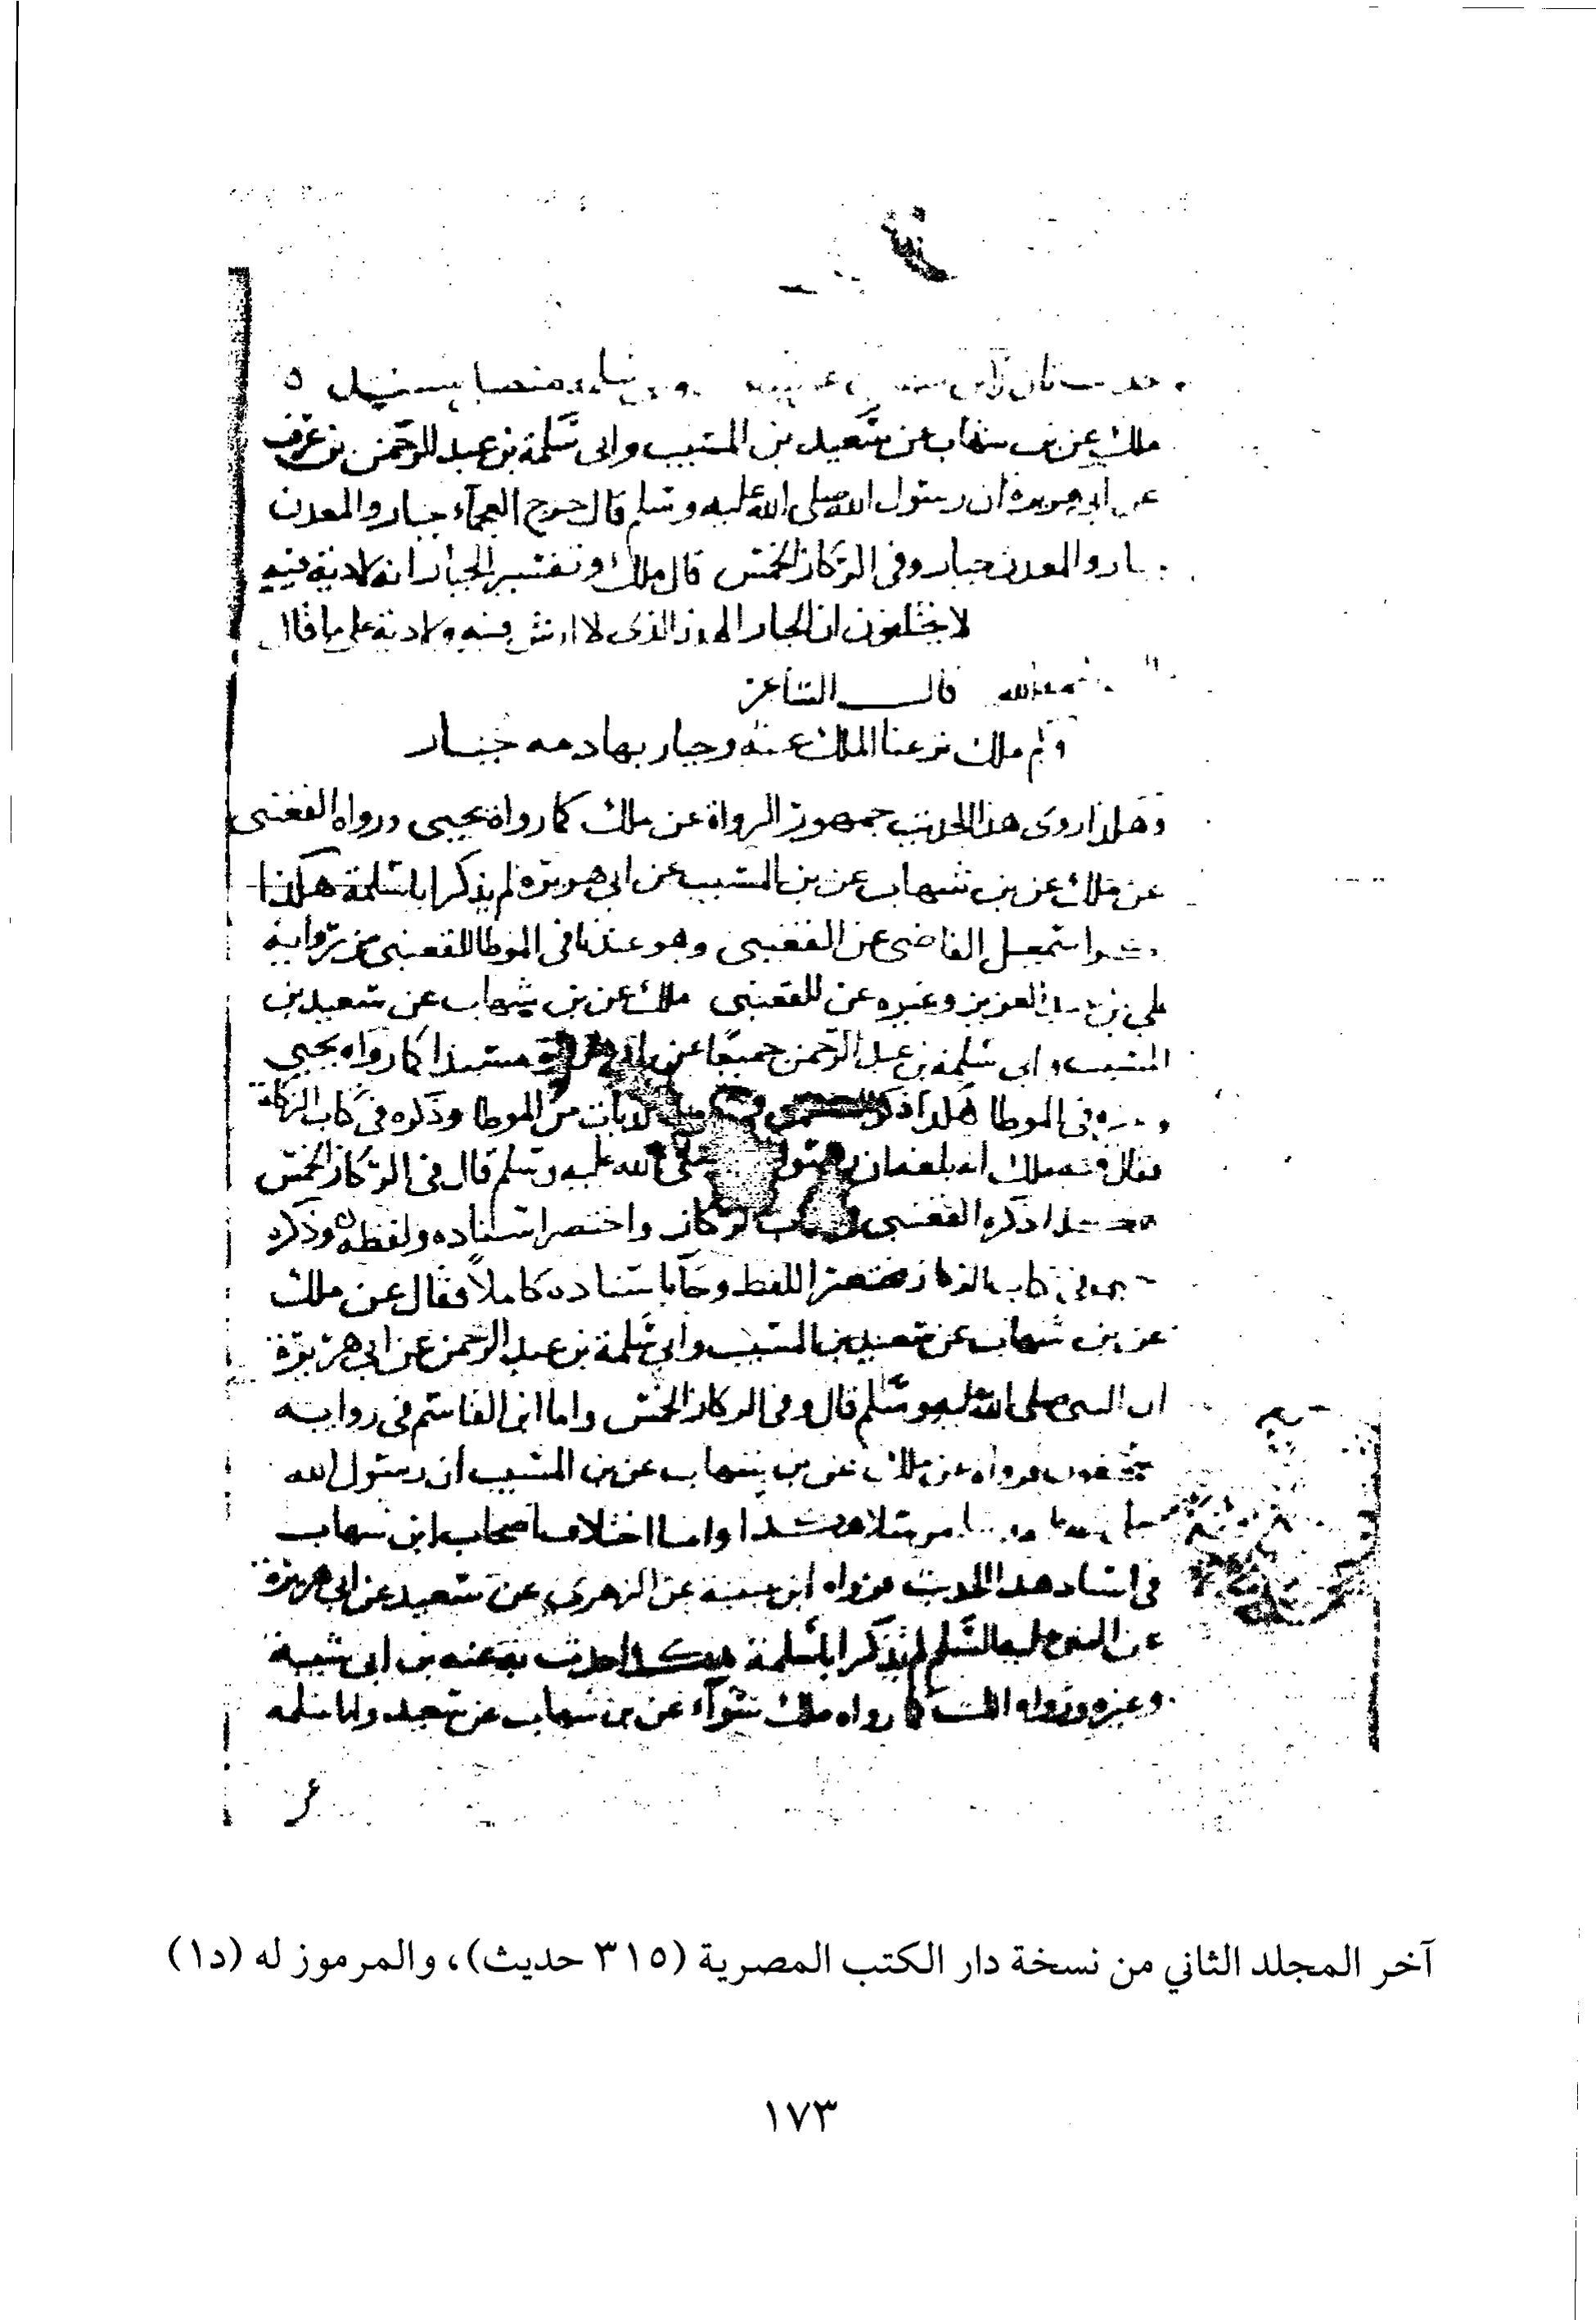 ملك عن بن شهاب عن سعيد بن المسيب وابى سلمة بن عبد الرحمن بن عوف
عن ابى هريرة ان رسول الله صلى الله عليه وسلم قال جرح العجمآء جبار والمعدن
والمعدن جبار وفى الركاز الخمس قال ملك وتفسير الجبار انه لا دية فيه
لا يختلفون ان الجبار الهدر الذى لا ارش فيه ولا دية على ما قال
الله قال الشاعر
وكم ملك نزعنا الملك عنه وجبار بها دمه جبار
وهكذا روى هذا الحديث جمهور الرواة عن ملك كما رواه يحيى ورواه القعنبى
عن ملك عن بن شهاب عن بن المسيب عن ابى هريرة لم يذكر ابا سلمة هكذا
اسمعيل القاضى عن القعنبى وهو عندنا فى الموطا للقعنبى من رواية
على بن عبد العزيز وغيره عن القعنبى ملك عن بن شهاب عن سعيد بن
المسيب وابى سلمة بن عبد الرحمن جميعا عن ابى هريرة مسندا كما رواه يحيى
فى الموطا هكذا ذكره القعنبى فى كتاب الديات من الموطا وذكره فى كتاب الزكاة
فقال فيه ملك انه بلغه ان رسول الله صلى الله عليه وسلم قال فى الركاز الخمس
هكذا ذكره القعنبى فى كتاب الزكاة واختصر اسناده ولفظه وذكره
يحيى فى كتاب الزكاة مختصر اللفظ وجآ باسناده كاملاً فقال عن ملك
عن بن شهاب عن سعيد بن المسيب وابى سلمة بن عبد الرحمن عن ابى هريرة
ان النبى صلى الله عليه وسلم قال وفى الركاز الخمس واما ابن القاسم فى رواية
سحنون فرواه عن ملك عن بن شهاب عن بن المسيب ان رسول الله
مرسلا هكذا واما اختلاف اصحاب ابن شهاب
فى اسناد هذا الحديث فرواه ابن عيينة عن الزهرى عن سعيد عن ابى هريرة
عن النبى عليه السلم لم يذكر ابا سلمة هكذا حدث به عنه بن ابى شيبة
وغيره ورواه الليث كما رواه ملك سوآء عن بن شهاب عن سعيد وابا سلمه
آخر المجلد الثاني من نسخة دار الكتب المصرية (٣١٥ حديث)، والمرموز له (د١)
١٧٣